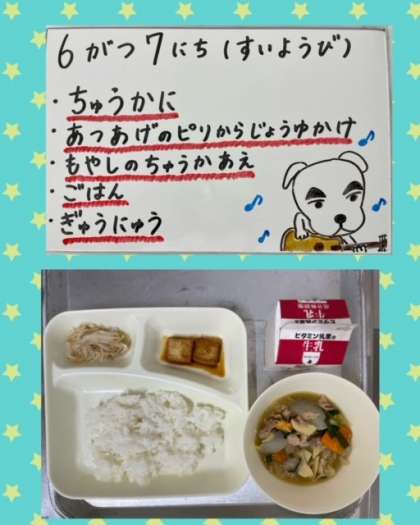 6がつ7にち(すいようび)
・ちゅうかに
・あつあげのピリからじょうゆかけ
・もやしのちゅうかあえ
・ごはん
・ぎゅうにゅう
牛乳
ビタミン乳業の